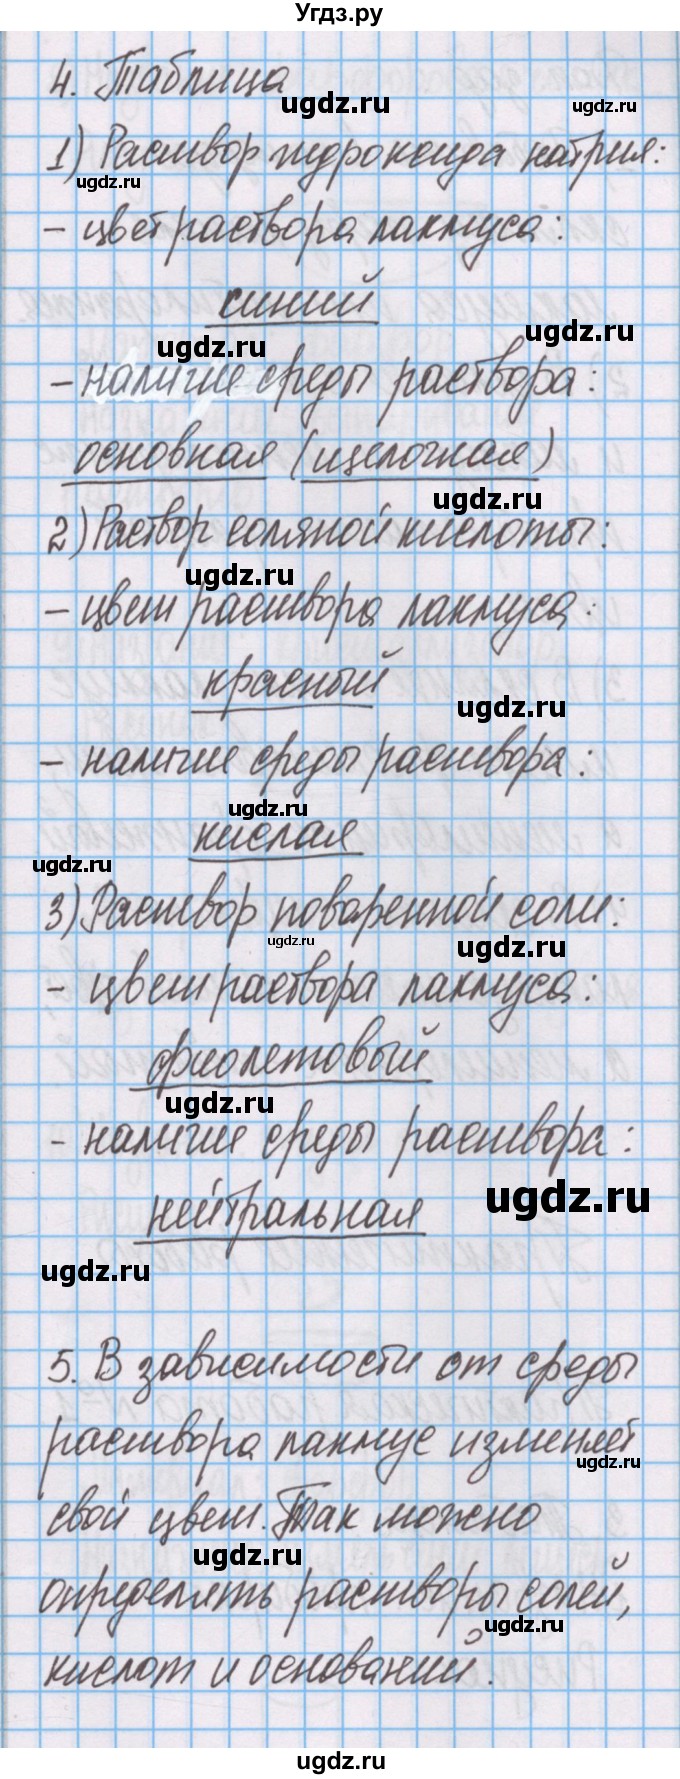 Угдз.ру
4. Таблица
ugdz.ru
ugdz.ru
1) Раствор гидроксида натрия:
ugdz.ru
- цвет раствора лакмуса:
синий
ugdz.ru
ugdz.ru
- наличие среды раствора:
основная (щелочная)
ugdz.ru
2) Раствор соляной кислоты:
ugdz.ru
- цвет раствора лакмуса:
красный
ugdz.ru
- наличие среды раствора:
ugdz.ru
кислая
ugdz.ru
3) Раствор поваренной соли:
ugdz.ru
ugdz.ru
- цвет раствора лакмуса:
фиолетовый
ugdz.ru
- наличие среды раствора:
ugdz.ru
нейтральная
ugdz.ru
5. В зависимости от среды
раствора лакмус изменяет
ugdz.ru
свой цвет. Так можно
ugdz.ru
определять растворы солей,
ugdz.ru
кислот и оснований.
ugdz.ru